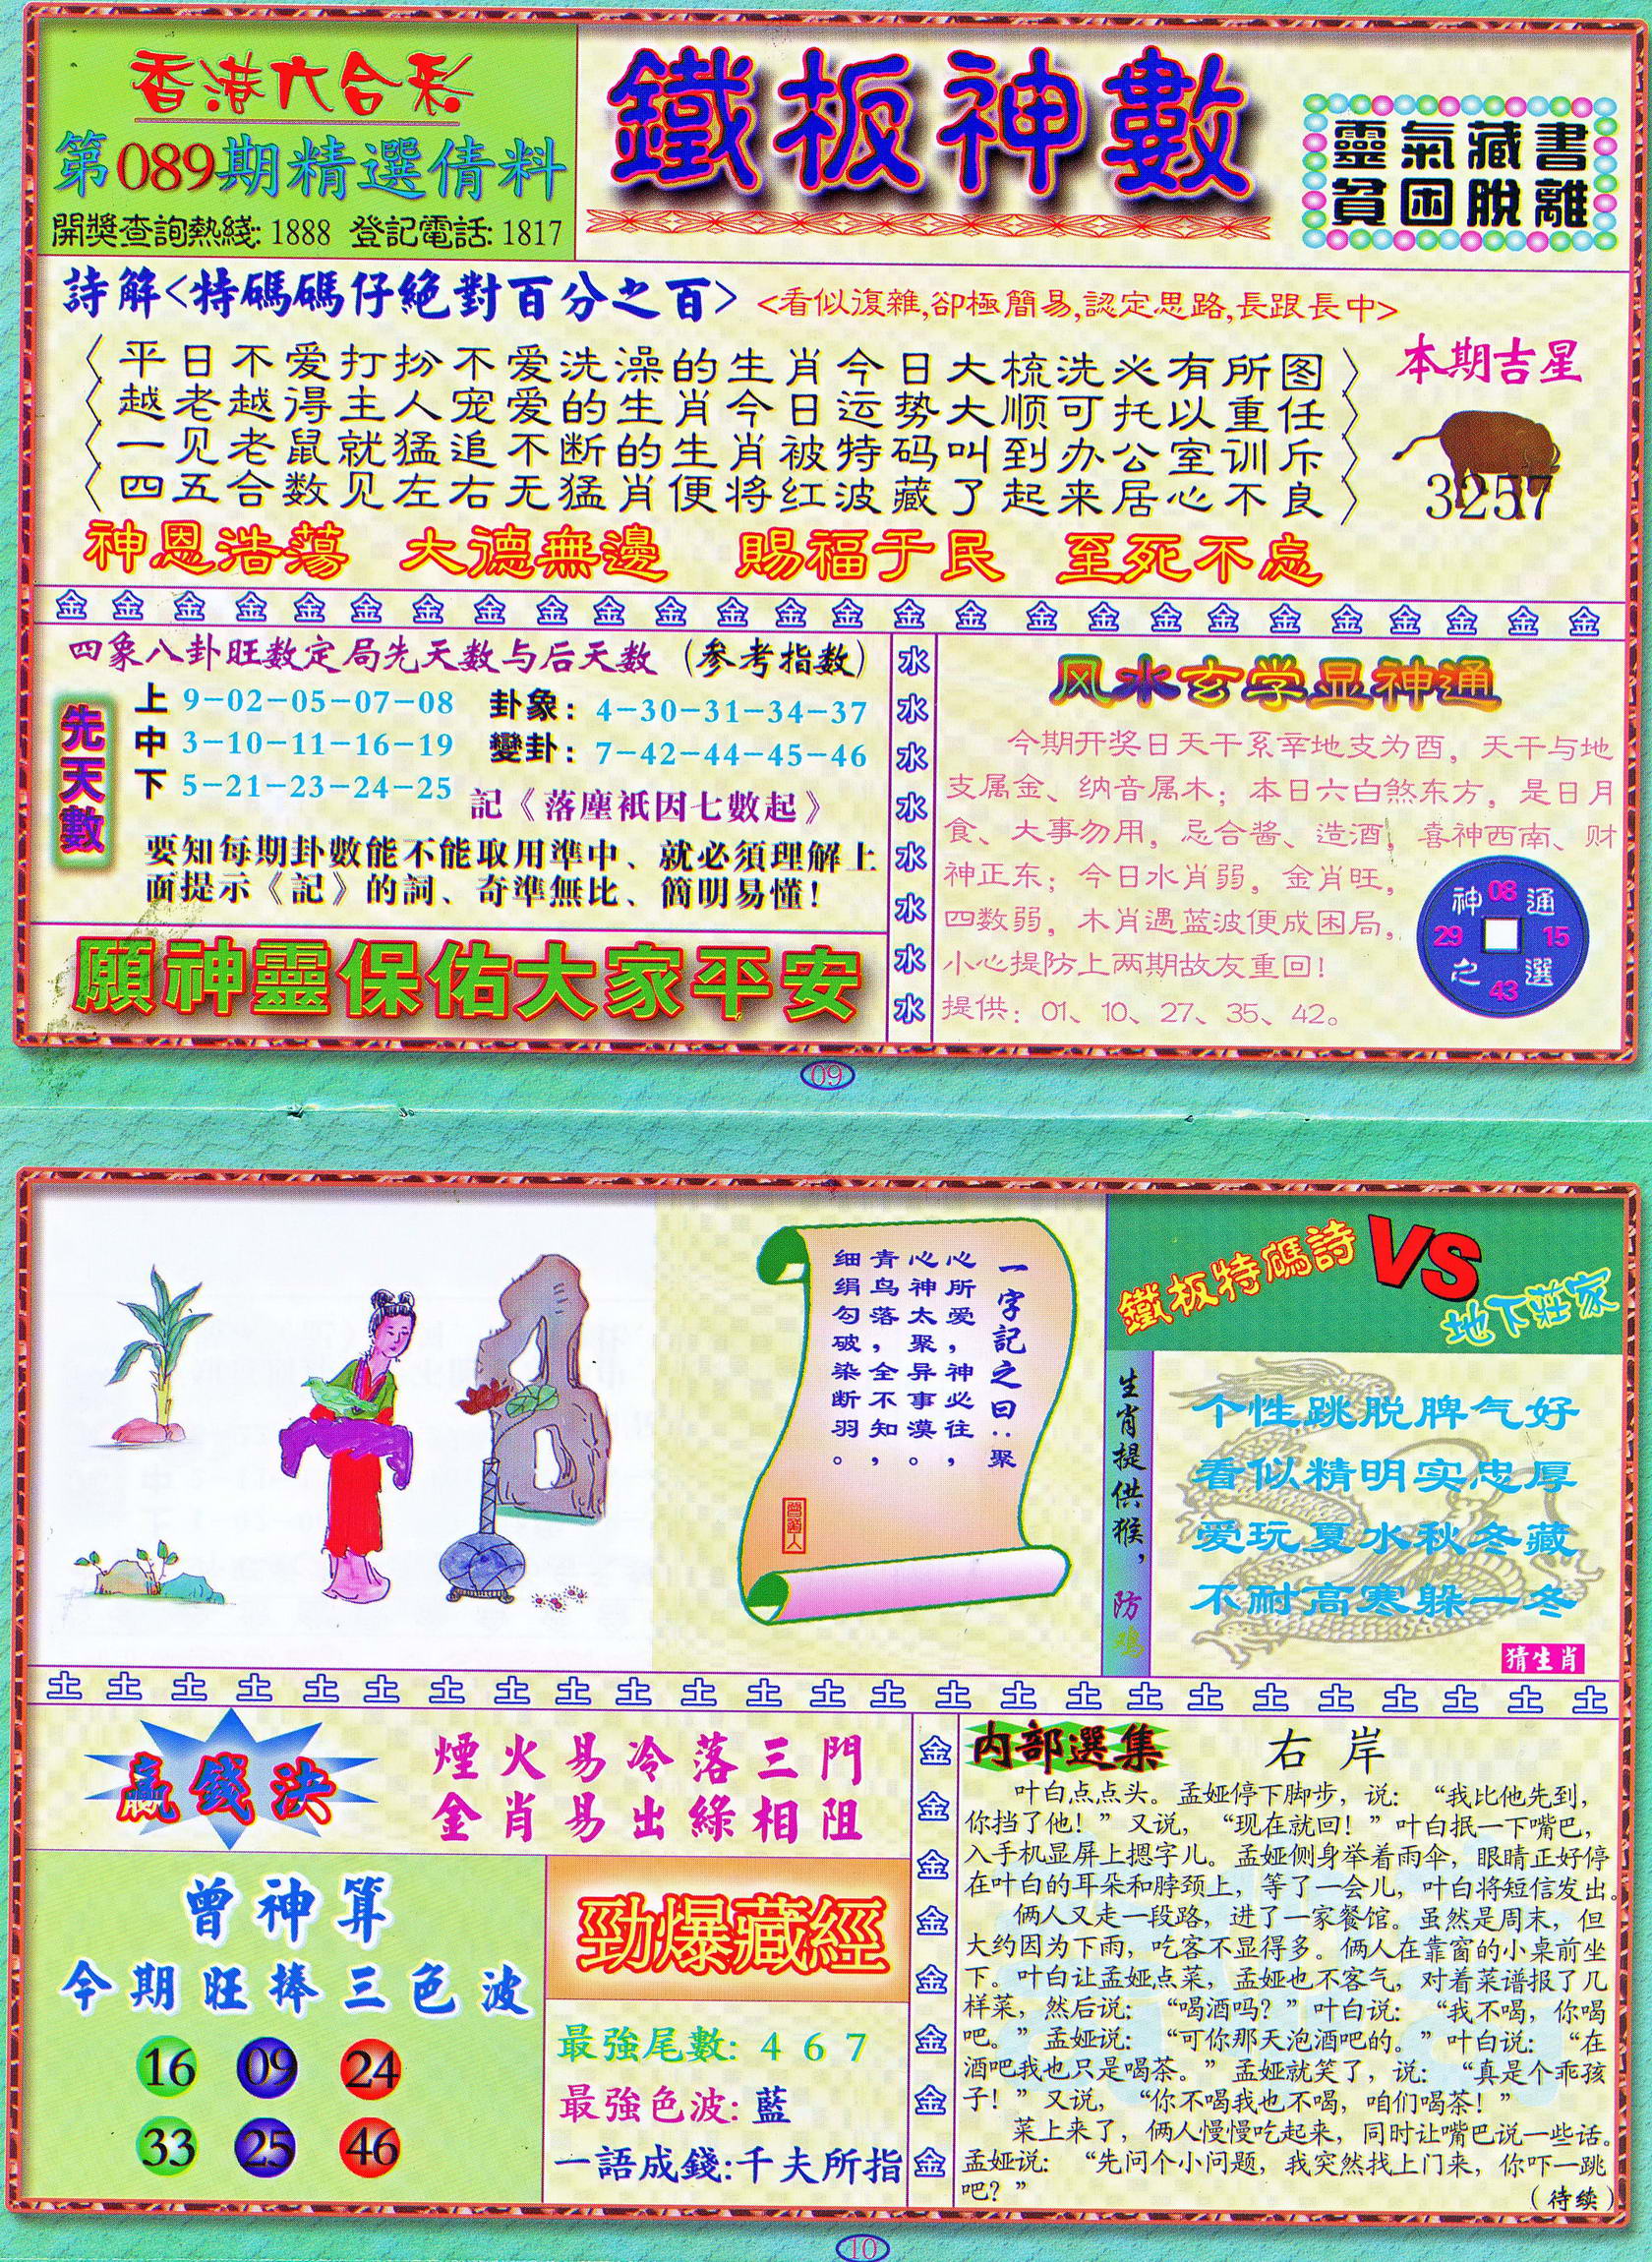 香港六合彩
第089期精選倩料
開獎查詢熱綫: 1888 登記電話: 1817
鐵板神數
靈氣藏書
貧困脫離
詩解<特碼碼仔絕對百分之百>
<看似復雜,卻極簡易,認定思路,長跟長中>
平日不爱打扮不爱洗澡的生肖今日大梳洗必有所图
越老越得主人宠爱的生肖今日运势大顺可托以重任
一见老鼠就猛追不断的生肖被特码叫到办公室训斥
四五合数见左右无猛肖便将红波藏了起来居心不良
本期吉星
3257
神恩浩蕩 大德無邊 賜福于民 至死不忘
金 金 金 金 金 金 金 金 金 金 金 金 金 金 金 金 金 金 金 金 金 金 金 金 金 金
四象八卦旺数定局先天数与后天数 (参考指数)
先天數
上 9-02-05-07-08
中 3-10-11-16-19
下 5-21-23-24-25
卦象: 4-30-31-34-37
變卦: 7-42-44-45-46
記《落塵祇因七數起》
要知每期卦數能不能取用準中、就必須理解上
面提示《記》的詞、奇準無比、簡明易懂!
願神靈保佑大家平安
水
水
水
水
水
水
水
水
风水玄学显神通
今期开奖日天干系辛地支为酉，天干与地
支属金、纳音属木；本日六白煞东方，是日月
食、大事勿用，忌合酱、造酒，喜神西南、财
神正东；今日水肖弱，金肖旺，
四数弱，木肖遇蓝波便成困局，
小心提防上两期故友重回!
提供：01、10、27、35、42。
神 08 通
29 15
之 43 選
09
一字記之曰：聚
心所爱，神必往，
心神太聚，异事漠。
青鸟落，全不知，
细绢勾破染断羽。
曾道人
鐵板特碼詩
VS
地下莊家
生肖提供猴，防鸡
个性跳脱脾气好
看似精明实忠厚
爱玩夏水秋冬藏
不耐高寒躲一冬
猜生肖
土 土 土 土 土 土 土 土 土 土 土 土 土 土 土 土 土 土 土 土 土 土 土 土 土
贏錢決
煙火易冷落三門
金肖易出綠相阻
曾神算
今期旺捧三色波
16 09 24
33 25 46
勁爆藏經
最強尾數: 4 6 7
最強色波: 藍
一語成錢:千夫所指
金
金
金
金
金
金
金
金
内部選集 右岸
叶白点点头。孟娅停下脚步，说：“我比他先到，
你挡了他！”又说，“现在就回！”叶白抿一下嘴巴，
入手机显屏上摁字儿。孟娅侧身举着雨伞，眼睛正好停
在叶白的耳朵和脖颈上，等了一会儿，叶白将短信发出。
俩人又走一段路，进了一家餐馆。虽然是周末，但
大约因为下雨，吃客不显得多。俩人在靠窗的小桌前坐
下。叶白让孟娅点菜，孟娅也不客气，对着菜谱报了几
样菜，然后说：“喝酒吗？”叶白说：“我不喝，你喝
吧。”孟娅说：“可你那天泡酒吧的。”叶白说：“在
酒吧我也只是喝茶。”孟娅就笑了，说：“真是个乖孩
子！”又说，“你不喝我也不喝，咱们喝茶！”
菜上来了，俩人慢慢吃起来，同时让嘴巴说一些话。
孟娅说：“先问个小问题，我突然找上门来，你吓一跳
吧？”
(待续)
10